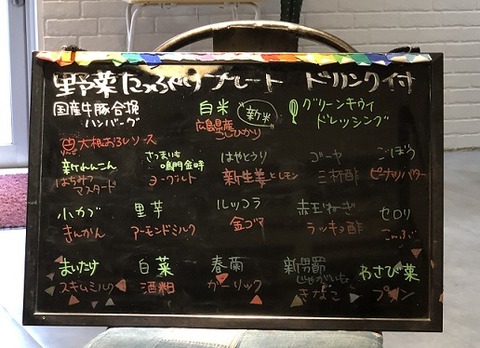 野菜たっぷりプレート ドリンク付
国産牛豚合挽
ハンバーグ
大根おろしソース
白米 新米
広島県産
こしひかり
グリーンキウイ
ドレッシング
新れんこん
はちみつ
マスタード
さつまいも
鳴門金時
ヨーグルト
はやとうり
新生姜とレモン
ゴーヤ
三杯酢
ごぼう
ピーナッツバター
小かぶ
きんかん
里芋
アーモンドミルク
ルッコラ
金ゴマ
赤玉ねぎ
ラッキョ酢
セロリ
こんぶ
まいたけ
スキムミルク
白菜
酒粕
春菊
ガーリック
新男爵
じゃがいも
きなこ
わさび菜
プラン